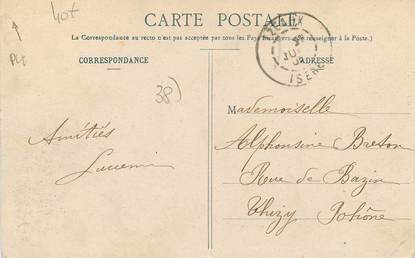 40x
CARTE POSTALE
(La Correspondance au recto n'est pas acceptée par tous les Pays se renseigner à la Poste.)
CORRESPONDANCE
ADRESSE
IZEAUX
ISÈRE
38)
Mademoiselle
Amitiés
Alphonsine Breton
Rue de Bazin
Thizy Rhône